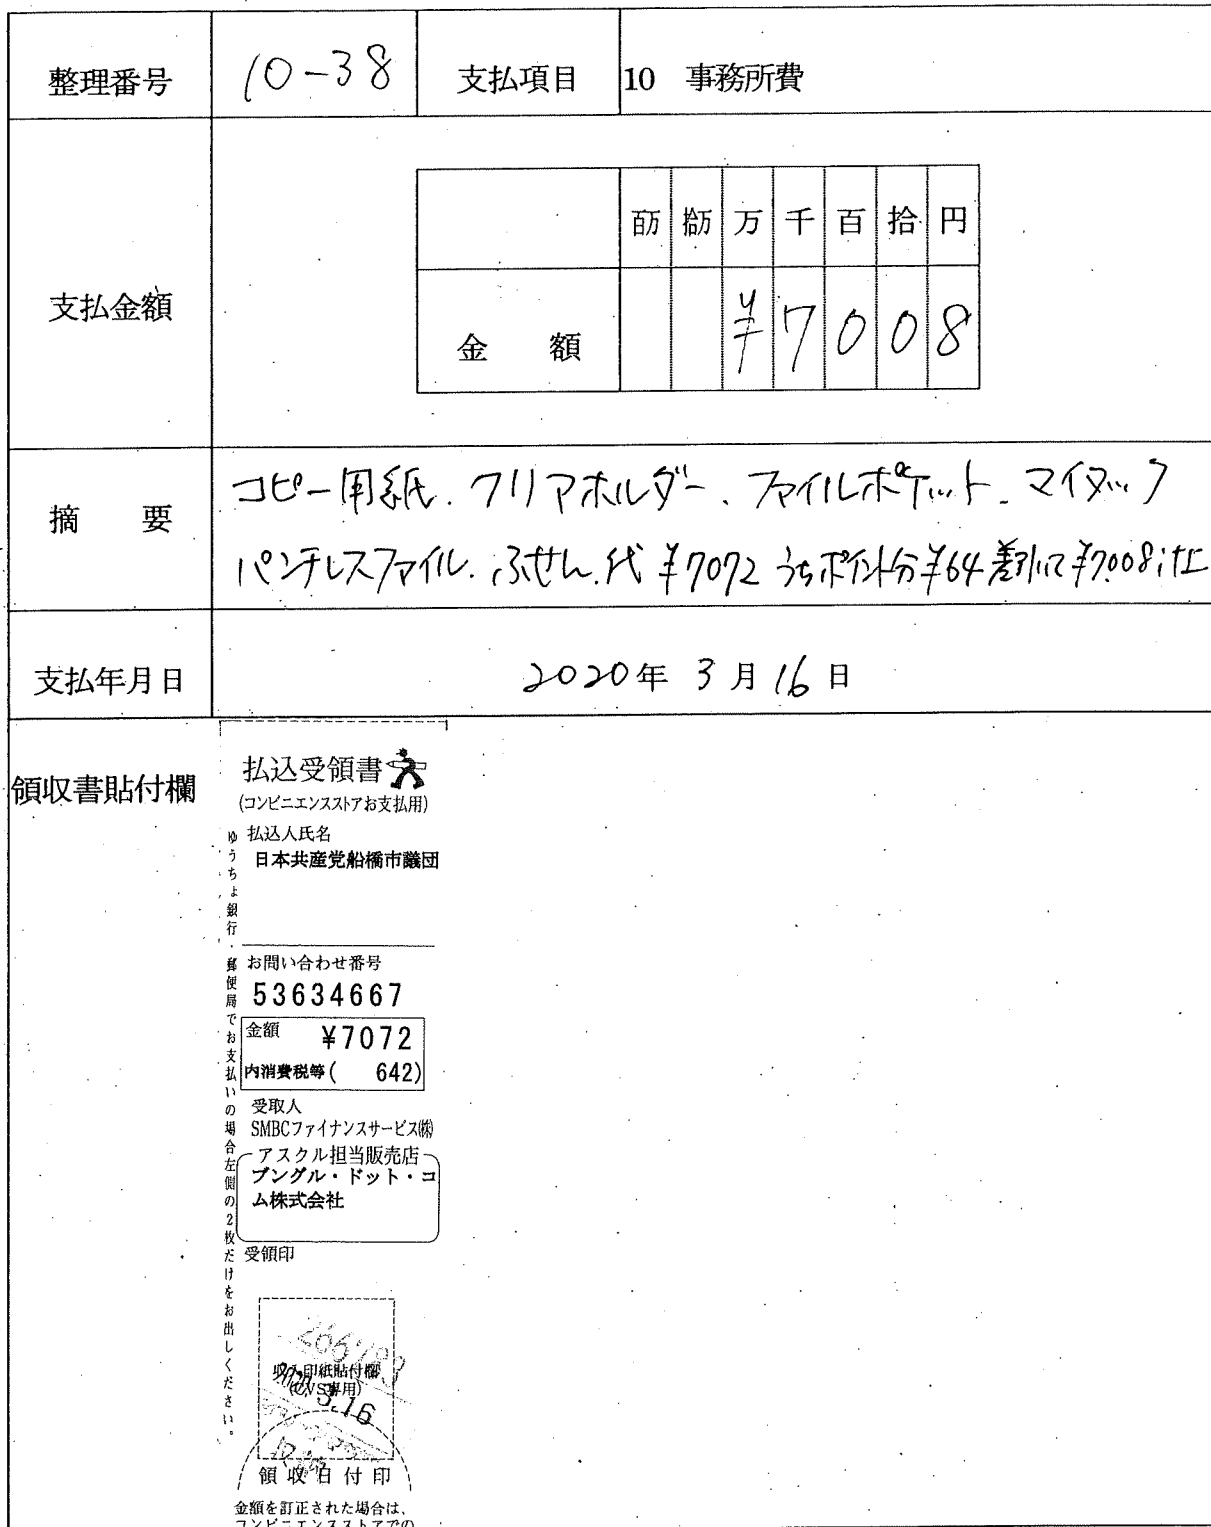 整理番号 10-38 支払項目 10 事務所費
百万 拾万 万 千 百 拾 円
支払金額
金 額 ¥7008
コピー用紙.クリアホルダー、ファイルポケット、マイタック
摘 要
パンチレスファイル.ふせん.代 ¥7072 うちポイント分¥64差引いて¥7008計上
支払年月日 2020年 3月16日
領収書貼付欄
払込受領書
(コンビニエンスストアお支払用)
払込人氏名
日本共産党船橋市議団
ゆうちょ銀行・郵便局でお支払いの場合左側の2枚だけをお出しください。
お問い合わせ番号
53634667
金額 ¥7072
内消費税等( 642)
受取人
SMBCファイナンスサービス㈱
アスクル担当販売店
ブングル・ドット・コ
ム株式会社
受領印
収入印紙貼付欄
(CVS専用)
2020.3.16
領収日付印
金額を訂正された場合は、
コンビニエンスストアでの